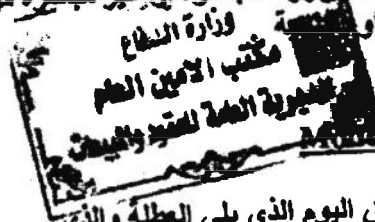 وزارة الدفاع
مكتب الأمين العام
المديرية العامة للعقود والمبيعات
اليوم الذي يلي العطلة والذي